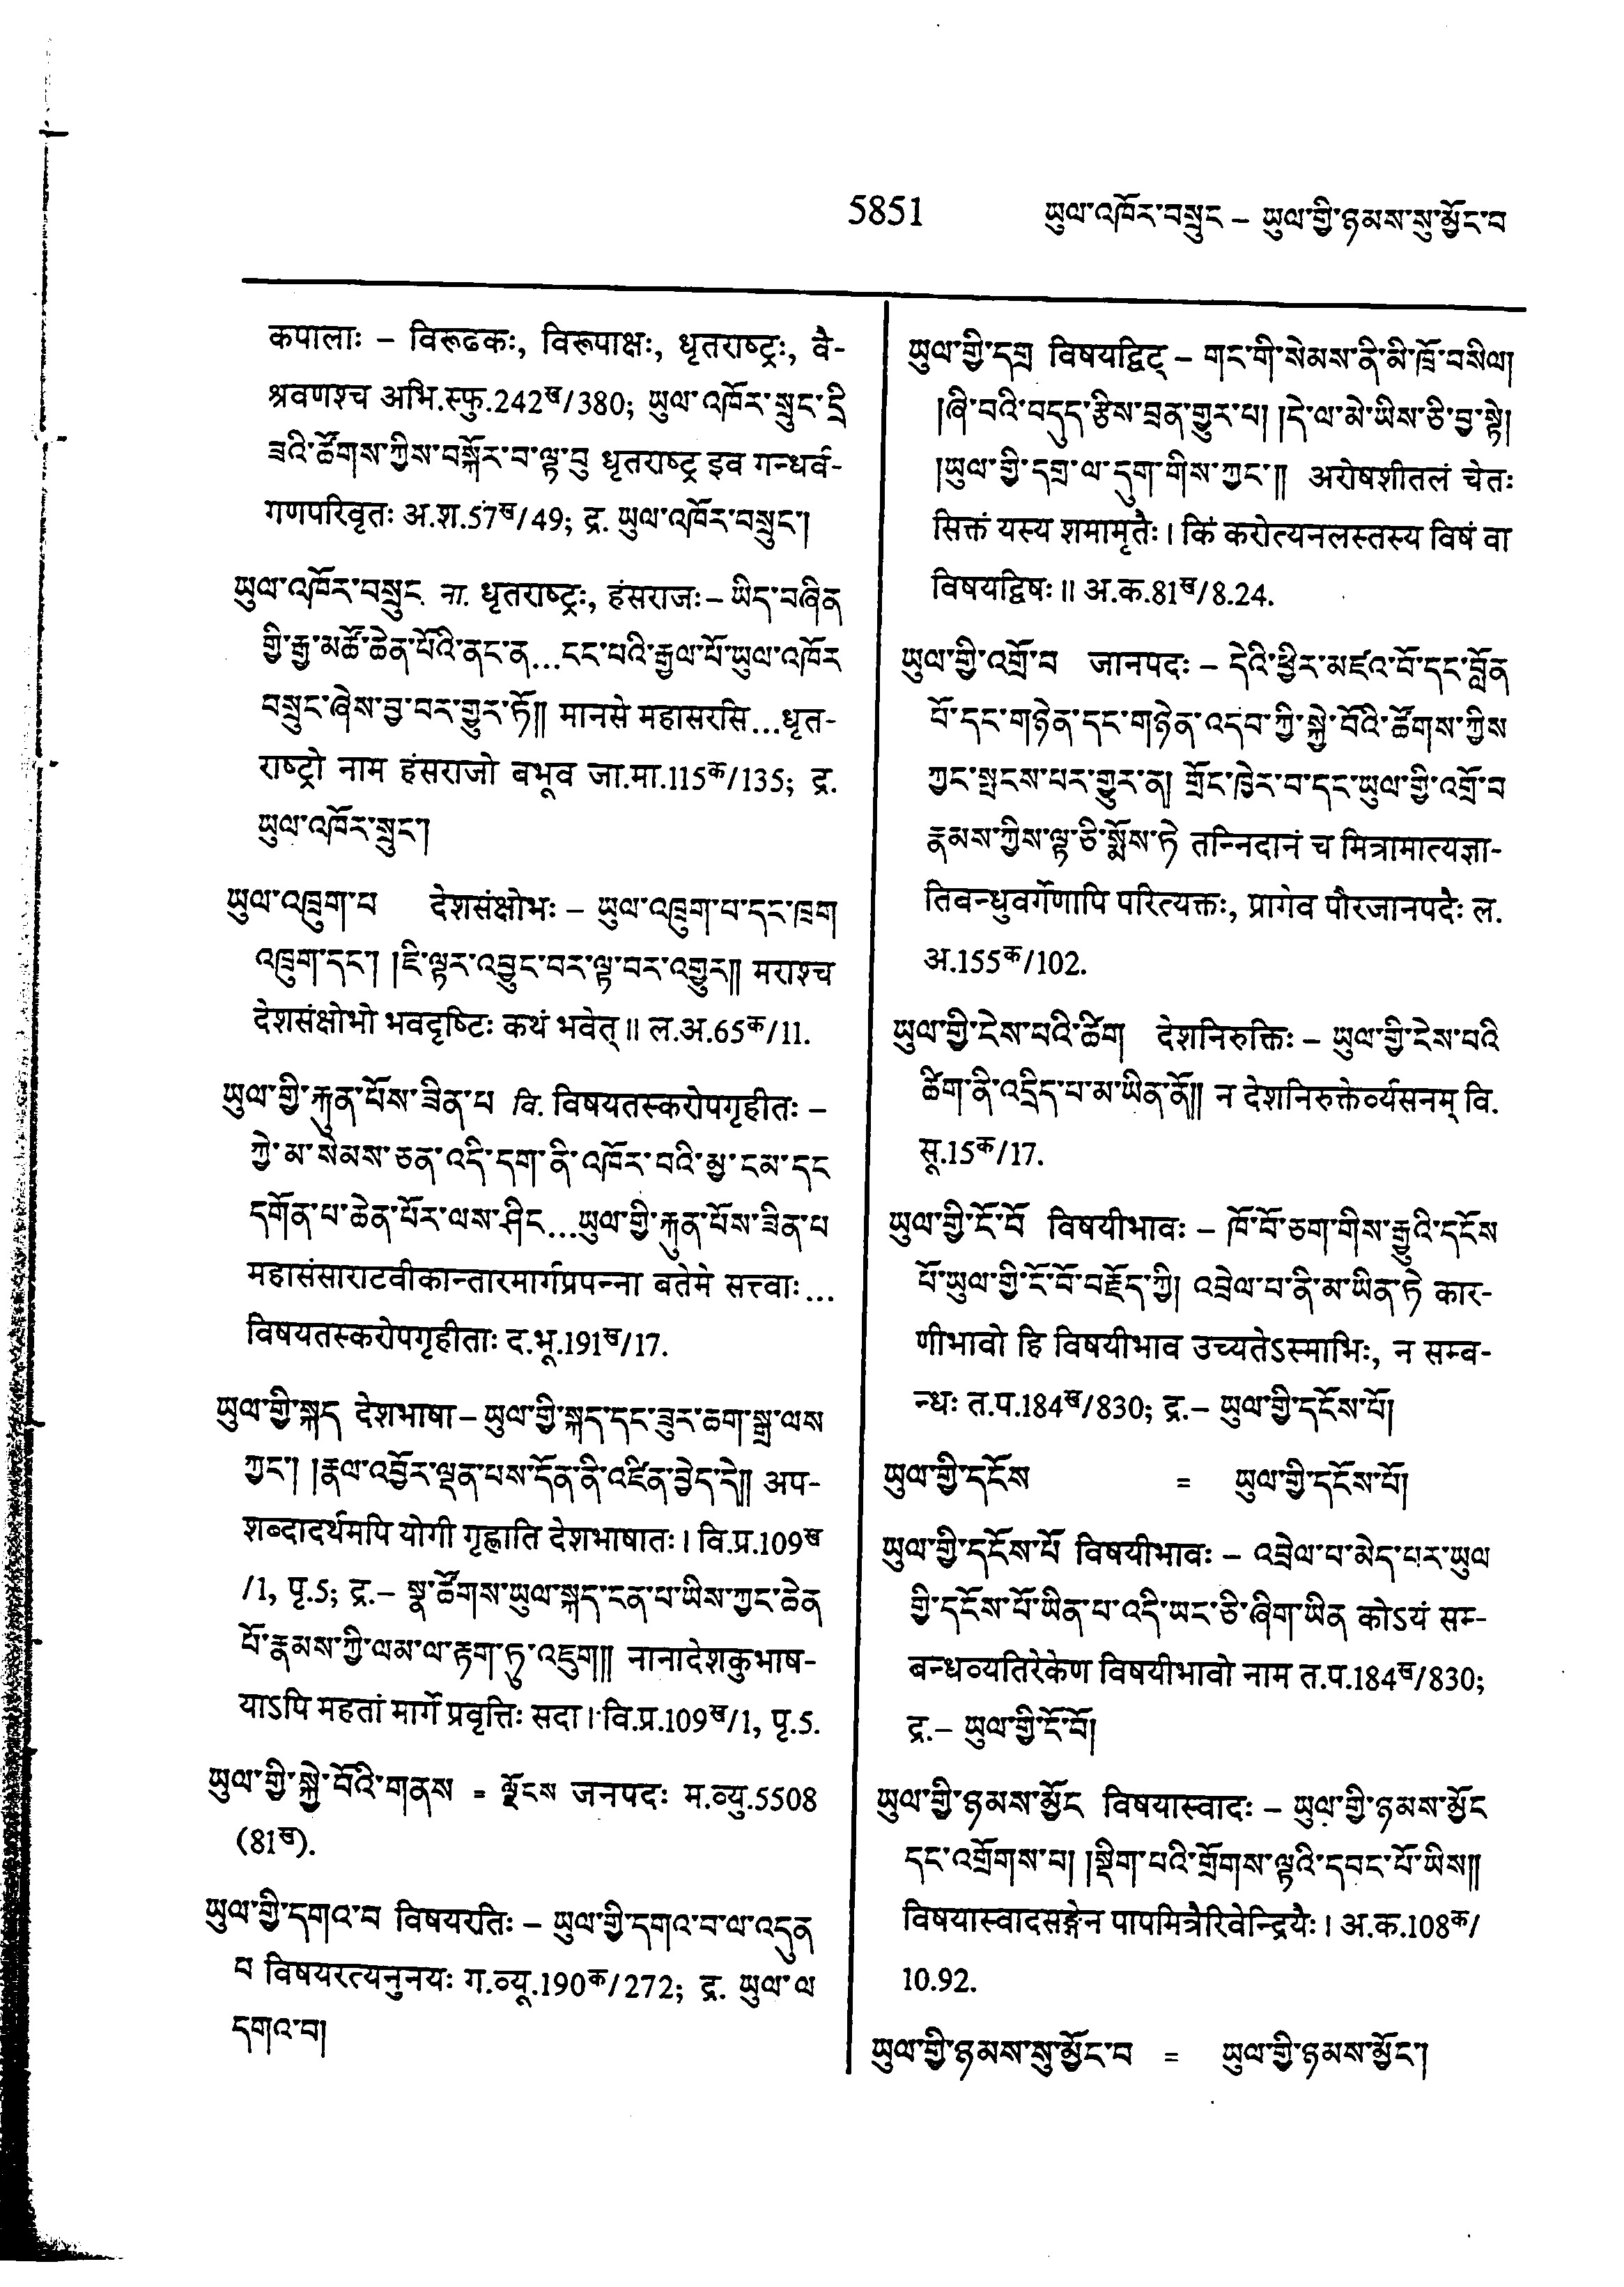 5851 ཡུལ་འཁོར་བསྲུང – ཡུལ་གྱི་ཉམས་སུ་མྱོང་བ
कपालाः – विरूढकः, विरूपाक्षः, धृतराष्ट्रः, वै-
श्रवणश्च अभि.स्फु.242ख/380; ཡུལ་འཁོར་སྲུང་དྲི
ཟའི་ཚོགས་ཀྱིས་བསྐོར་བ་ལྟ་བུ धृतराष्ट्र इव गन्धर्व-
गणपरिवृतः अ.श.57ख/49; द्र. ཡུལ་འཁོར་བསྲུང་།
ཡུལ་འཁོར་བསྲུང ना. धृतराष्ट्रः, हंसराजः – ཡིད་བཞིན
གྱི་རྒྱ་མཚོ་ཆེན་པོའི་ནང་ན...ངང་པའི་རྒྱལ་པོ་ཡུལ་འཁོར
བསྲུང་ཞེས་བྱ་བར་གྱུར་ཏོ།། मानसे महासरसि...धृत-
राष्ट्रो नाम हंसराजो बभूव जा.मा.115क/135; द्र.
ཡུལ་འཁོར་སྲུང་།
ཡུལ་འཁྲུག་པ देशसंक्षोभः – ཡུལ་འཁྲུག་པ་དང་ཁྲག
འཁྲུག་དང་། །ཇི་ལྟར་འབྱུང་བར་ལྟ་བར་འགྱུར།། मराश्च
देशसंक्षोभो भवदृष्टिः कथं भवेत्॥ ल.अ.65क/11.
ཡུལ་གྱི་རྐུན་པོས་ཟིན་པ वि. विषयतस्करोपगृहीतः –
ཀྱེ་མ་སེམས་ཅན་འདི་དག་ནི་འཁོར་བའི་མྱ་ངམ་དང
དགོན་པ་ཆེན་པོར་ལས་ཤིང...ཡུལ་གྱི་རྐུན་པོས་ཟིན་པ
महासंसाराटवीकान्तारमार्गप्रपन्ना बतेमे सत्त्वाः...
विषयतस्करोपगृहीताः द.भू.191ख/17.
ཡུལ་གྱི་སྐད देशभाषा – ཡུལ་གྱི་སྐད་དང་ཟུར་ཆག་སྒྲ་ལས
ཀྱང་། །རྣལ་འབྱོར་ལྡན་པས་དོན་ནི་འཛིན་བྱེད་དེ།། अप-
शब्दादर्थमपि योगी गृह्णाति देशभाषातः। वि.प्र.109ख
/1, पृ.5; द्र.– སྣ་ཚོགས་ཡུལ་སྐད་ངན་པ་ཡིས་ཀྱང་ཆེན
པོ་རྣམས་ཀྱི་ལམ་ལ་རྟག་ཏུ་འཇུག།། नानादेशकुभाष-
याऽपि महतां मार्गे प्रवृत्तिः सदा। वि.प्र.109ख/1, पृ.5.
ཡུལ་གྱི་སྐྱེ་བོའི་གནས = ལྗོངས जनपदः म.व्यु.5508
(81ख).
ཡུལ་གྱི་དགའ་བ विषयरतिः – ཡུལ་གྱི་དགའ་བ་ལ་འདུན
པ विषयरत्यनुनयः ग.व्यू.190क/272; द्र. ཡུལ་ལ
དགའ་བ།
ཡུལ་གྱི་དགྲ विषयद्विट् – གང་གི་སེམས་ནི་མི་ཁྲོ་བསིལ།
།ཞི་བའི་བདུད་རྩིས་བྲན་གྱུར་པ། །དེ་ལ་མེ་ཡིས་ཅི་བྱ་སྟེ།
།ཡུལ་གྱི་དགྲ་ལ་དུག་གིས་ཀྱང་།། अरोषशीतलं चेतः
सिक्तं यस्य शमामृतैः। किं करोत्यनलस्तस्य विषं वा
विषयद्विषः॥ अ.क.81ख/8.24.
ཡུལ་གྱི་འགྲོ་བ जानपदः – དེའི་ཕྱིར་མཛའ་བོ་དང་བློན
པོ་དང་གཉེན་དང་གཉེན་འདབ་ཀྱི་སྐྱེ་བོའི་ཚོགས་ཀྱིས
ཀྱང་སྤངས་པར་གྱུར་ན། གྲོང་ཁྱེར་བ་དང་ཡུལ་གྱི་འགྲོ་བ
རྣམས་ཀྱིས་ལྟ་ཅི་སྨོས་ཏེ तन्निदानं च मित्रामात्यज्ञा-
तिबन्धुवर्गेणापि परित्यक्तः, प्रागेव पौरजानपदैः ल.
अ.155क/102.
ཡུལ་གྱི་ངེས་པའི་ཚིག देशनिरुक्तिः – ཡུལ་གྱི་ངེས་པའི
ཚིག་ནི་འདྲིད་པ་མ་ཡིན་ནོ།། न देशनिरुक्तेर्व्यसनम् वि.
सू.15क/17.
ཡུལ་གྱི་ངོ་བོ विषयीभावः – ཁོ་བོ་ཅག་གིས་རྒྱུའི་དངོས
པོ་ཡུལ་གྱི་ངོ་བོ་བརྗོད་ཀྱི། འབྲེལ་པ་ནི་མ་ཡིན་ཏེ कार-
णीभावो हि विषयीभाव उच्यतेऽस्माभिः, न सम्ब-
न्धः त.प.184ख/830; द्र.– ཡུལ་གྱི་དངོས་པོ།
ཡུལ་གྱི་དངོས = ཡུལ་གྱི་དངོས་པོ།
ཡུལ་གྱི་དངོས་པོ विषयीभावः – འབྲེལ་པ་མེད་པར་ཡུལ
གྱི་དངོས་པོ་ཡིན་པ་འདི་ཡང་ཅི་ཞིག་ཡིན कोऽयं सम्-
बन्धव्यतिरेकेण विषयीभावो नाम त.प.184ख/830;
द्र.– ཡུལ་གྱི་ངོ་བོ།
ཡུལ་གྱི་ཉམས་མྱོང विषयास्वादः – ཡུལ་གྱི་ཉམས་མྱོང
དང་འགྲོགས་པ། །སྡིག་པའི་གྲོགས་ལྟའི་དབང་པོ་ཡིས།།
विषयास्वादसङ्गेन पापमित्रैरिवेन्द्रियैः। अ.क.108क/
10.92.
ཡུལ་གྱི་ཉམས་སུ་མྱོང་བ = ཡུལ་གྱི་ཉམས་མྱོང་།